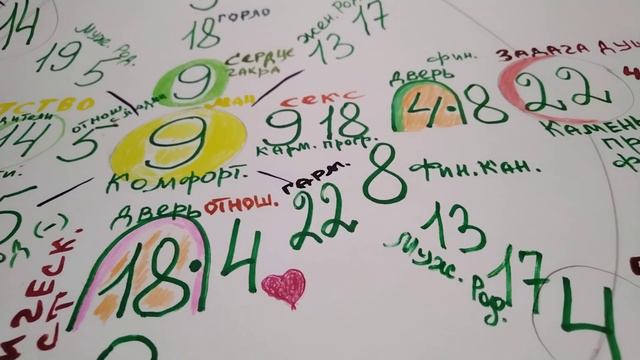 14
9
18 ГОРЛО
ЖЕН. РОД.
13 17
МУЖ. РОД.
19 5
9 СЕРДЦЕ
ЧАКРА
ФИН.
ДВЕРЬ
4. 8
ЗАДАЧА ДУШ
22
КАМЕНЬ
ПР
Ф
ТСТВО
14
ОТНОШ.
5
9
КОМФОРТ.
СЕКС
9 18
КАРМ. ПРОГР.
8 ФИН. КАН.
ГАРМ.
22
ДВЕРЬ ОТНОШ.
18. 4
13 17
МУЖ. РОД.
4
(-)